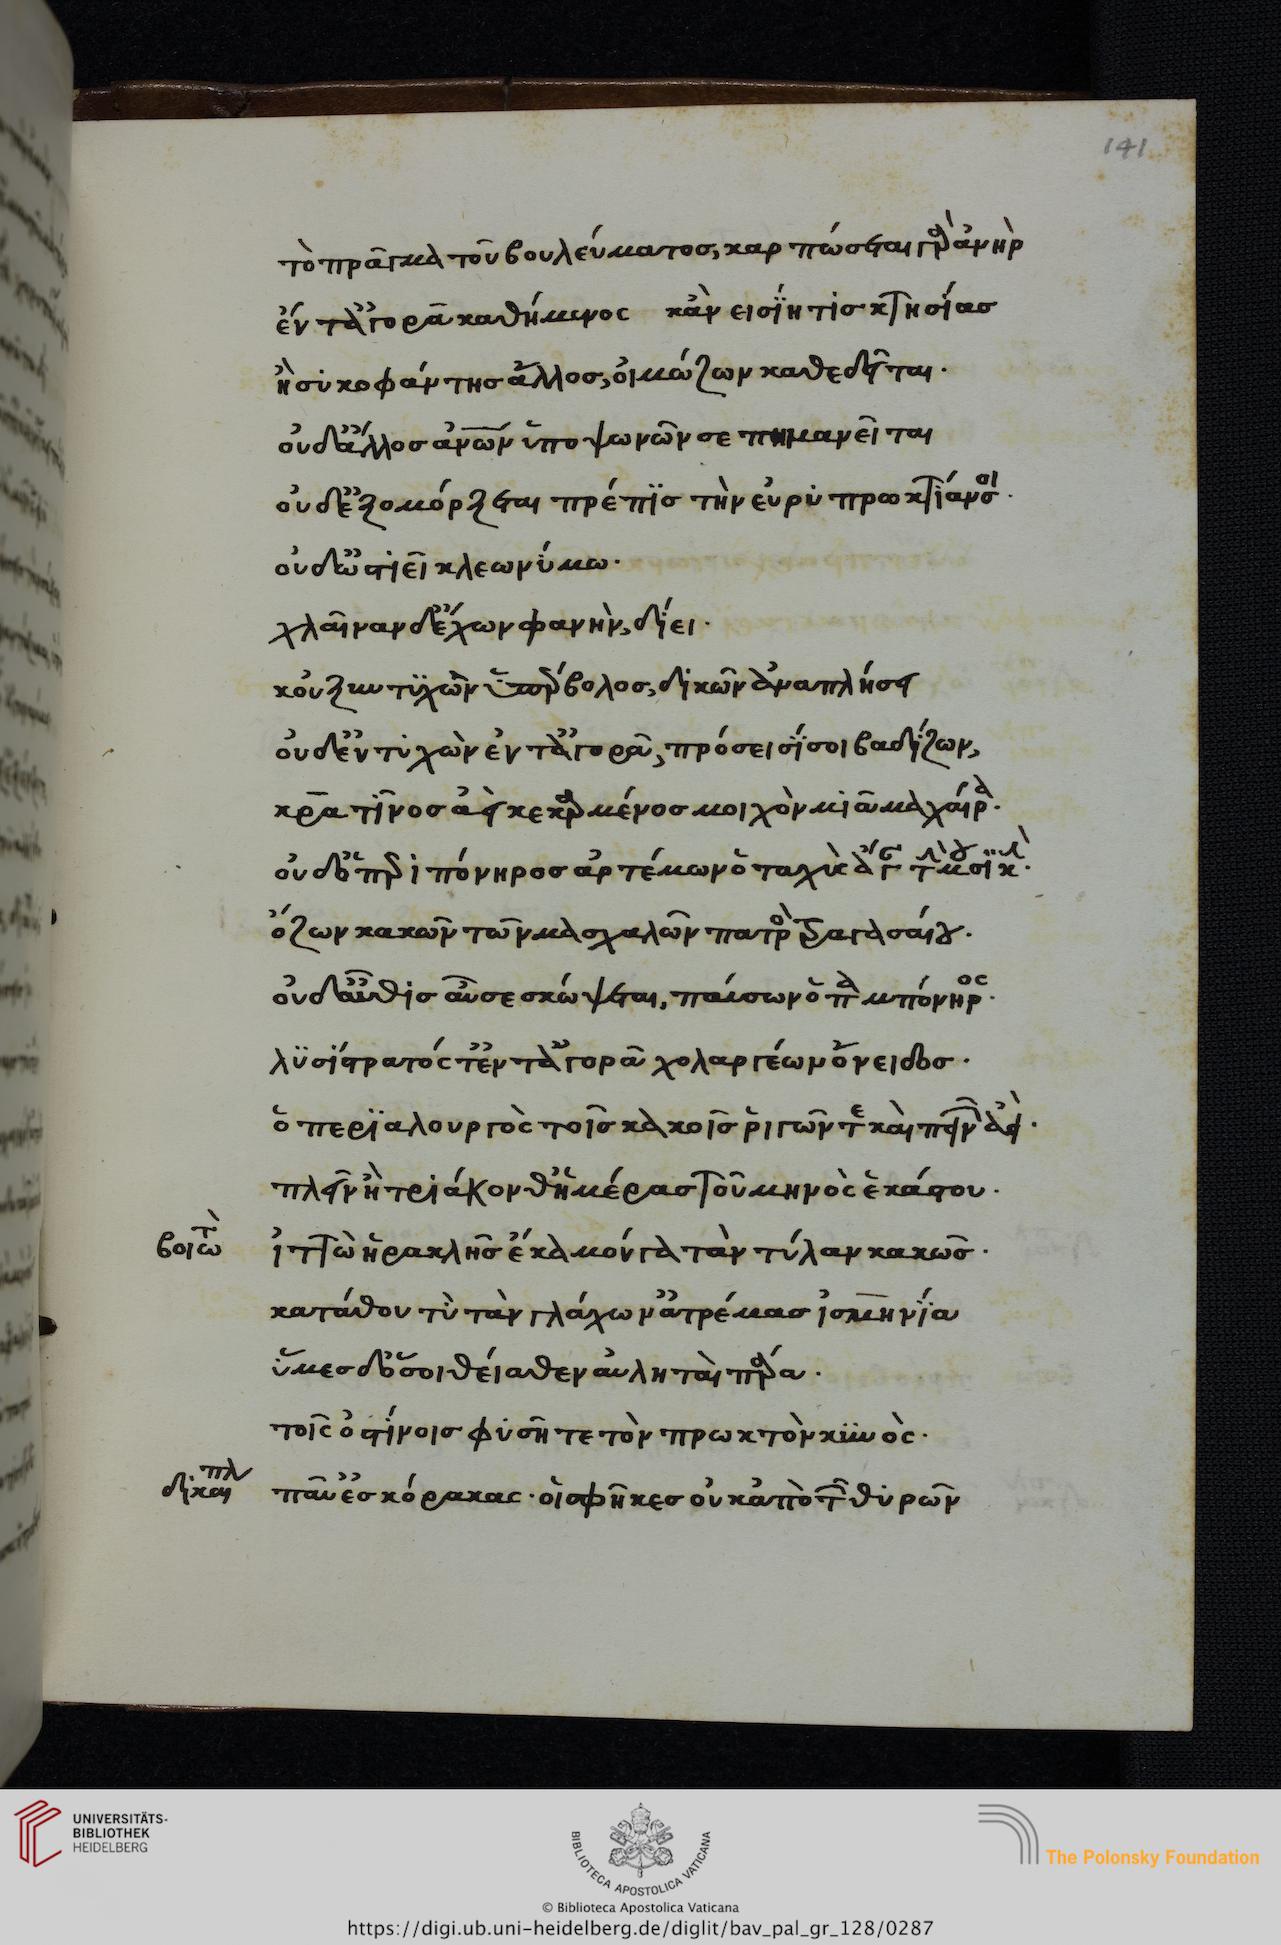 141
τὸ πρᾶγμα τοῦ βουλεύματος, καρπώσεται γὰρ ἀνὴρ
ἐν τἀγορᾶ καθήμενος κἂν εἰσίη τις κτησίας
ἢ συκοφάντης ἄλλος, οἰμώζων καθεδεῖται.
οὐδ' ἄλλος ἀνθρώπων ὑποψωνῶν σε πημανεῖται
οὐδ' ἐξομόρξεται πρέπις τὴν εὐρυπρωκτίαν σοι.
οὐδ' ὠστιεῖ κλεωνύμω.
χλαῖναν δ' ἔχων φανὴν, δίει.
κοὐ ξυντυχὼν ὑπέρβολος, δικῶν ἀναπλήσει
οὐδ' ἐντυχὼν ἐν τἀγορᾶ, πρόσεισί σοι βαδίζων,
κρατῖνος ἀεὶ κεκαρμένος μοιχὸν μιᾶ μαχαίρα.
οὐδ' ὁ περιπόνηρος ἀρτέμων ὁ ταχὺς ἄγαν τὴν μουσικὴν.
ὄζων κακῶν τῶν μασχαλῶν πατρὸς τραγασαίου.
οὐδ' αὖθις αὖ σε σκώψεται, παύσων ὁ παμπόνηρος.
λυσίστρατός τ' ἐν τἀγορᾶ χολαργέων ὄνειδος.
ὁ περιαλουργὸς τοῖς κακοῖς ῥιγῶν τε καὶ πεινῶν ἀεὶ.
πλεῖν ἢ τριάκονθ' ἡμέρας τοῦ μηνὸς ἑκάστου.
βοιωτ ἰττὼ ἡρακλῆς ἔκαμόν γα τὰν τύλαν κακῶς.
κατάθου τὺ τὰν γλάχων ἀτρέμας ἰσμηνία
ὑμες δ' ὅσοι θείαθεν αὐληταὶ πάρα.
τοῖς ὀστίνοις φυσῆτε τὸν πρωκτὸν κυνὸς.
δικαιπλ παῦ ἐς κόρακας. οἱ σφῆκες οὐκ ἀπὸ τῶν θυρῶν
UNIVERSITÄTS-
BIBLIOTHEK
HEIDELBERG
BIBLIOTECA APOSTOLICA VATICANA
The Polonsky Foundation
© Biblioteca Apostolica Vaticana
https://digi.ub.uni-heidelberg.de/diglit/bav_pal_gr_128/0287